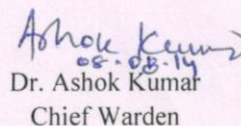 Ashok Kumar
08.08.14
Dr. Ashok Kumar
Chief Warden